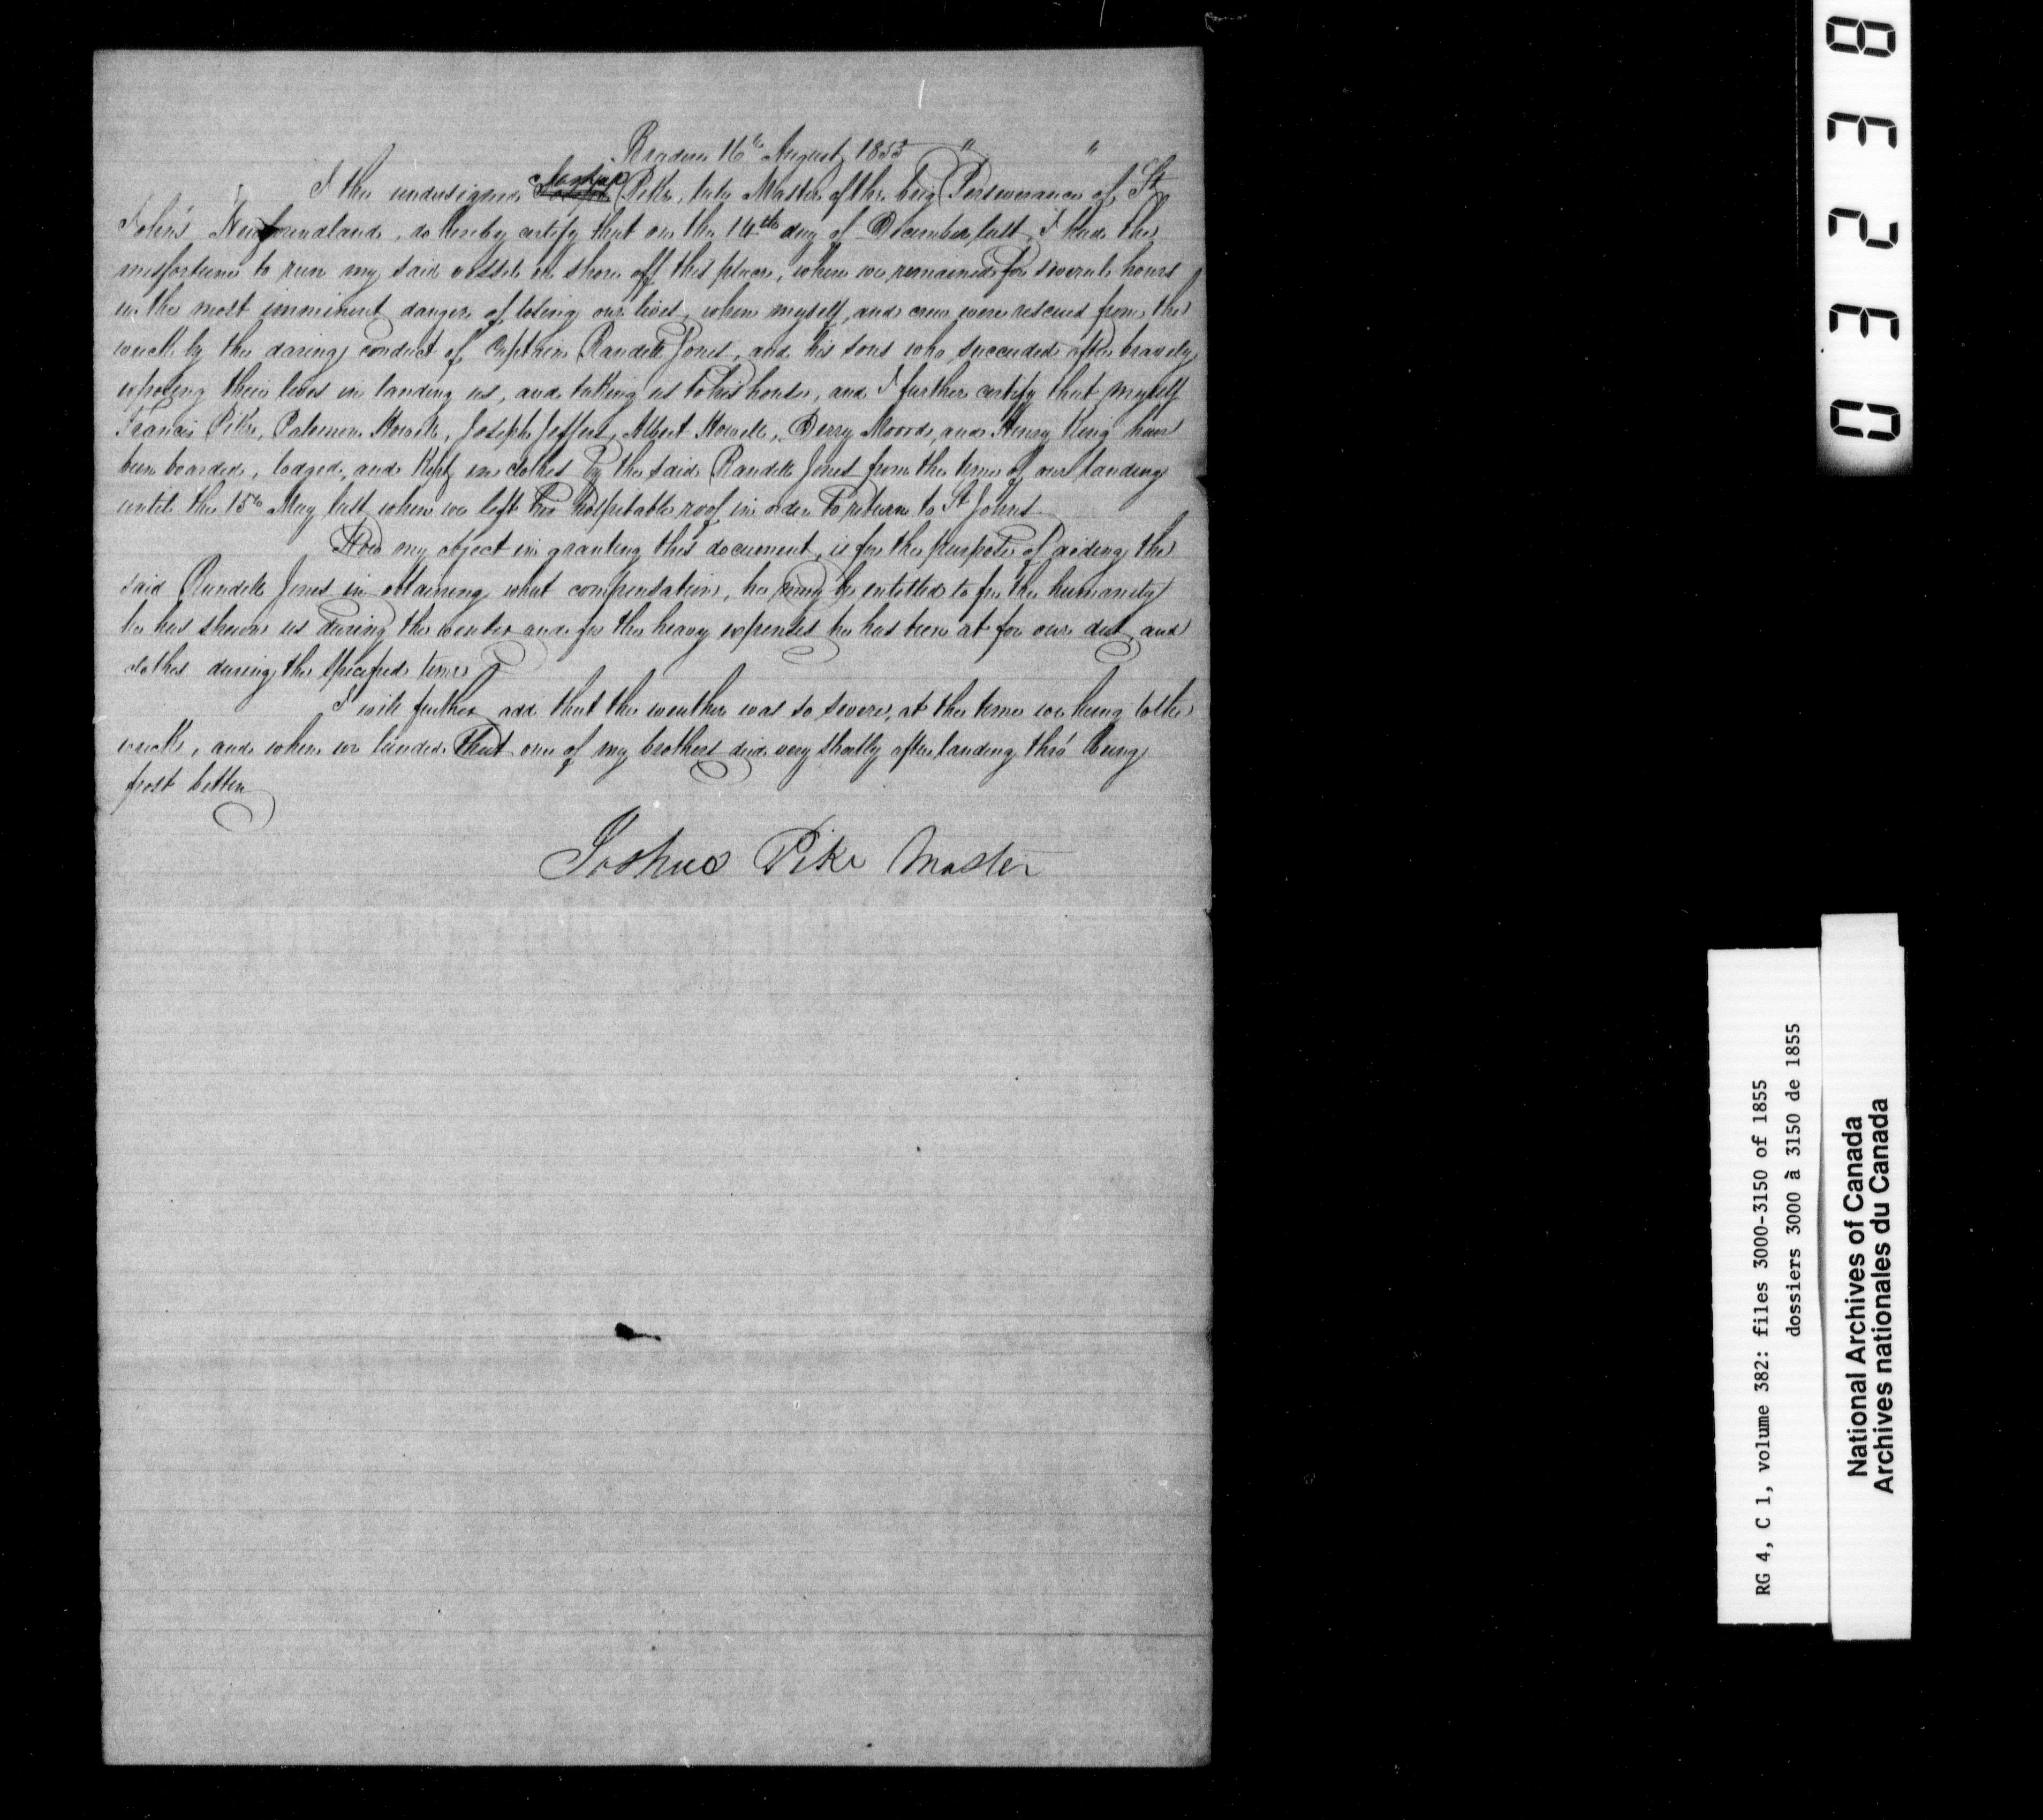 Bradore 16th August 1855
I the undersigned Joshua Pike, late Master of the brig "Perseverance" of St
John's Newfoundland, do hereby certify that on the 14th day of December last, I had the
misfortune to run my said vessel on shore off this place, where we remained for several hours
in the most imminent danger of losing our lives, when myself, and crew were rescued from the
wreck by the daring conduct of Captain Randell Jones, and his sons who succeeded after bravely
exposing their lives in landing us, and taking us to his house, and I further certify that myself
Francis Pike, Howell, Joseph Jeffers, Albert Howell, Derry Moores, and Henry King have
been boarded, lodged, and kept in clothes by the said Randell Jones from the time of our landing
until the 15th May last when we left his hospitable roof in order to return to St Johns
Now my object in granting this document, is for the purpose of aiding the
said Randell Jones in obtaining what compensation, he may be entitled to for the humanity
he has shewn us during the winter and for the heavy expenses he has been at for our diet and
clothes during the specified time
I will further add that the weather was so severe, at the time we hung to the
wreck, and when we landed that one of my brothers died very shortly after landing thro' being
frost bitten
Joshua Pike Master
03238
RG 4, C 1, volume 382: files 3000-3150 of 1855
dossiers 3000 à 3150 de 1855
National Archives of Canada
Archives nationales du Canada